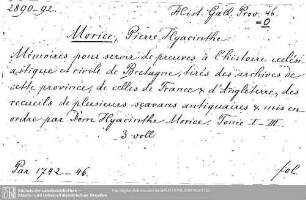 2890-92.
Hist. Gall. Prov. 46.
=0
Morice, Pierre Hyacinthe
Mémoires pour servir de preuves à l'histoire ecclési
astique et civile de Bretagne, tirés des archives de
cette province, de celles de France & d'Angleterre, des
recueils de plusieurs sçavans antiquaires & mis en
ordre par Dom Hyacinthe Morice. Tome I-III.
3 voll
Par 1742-46.
fol.